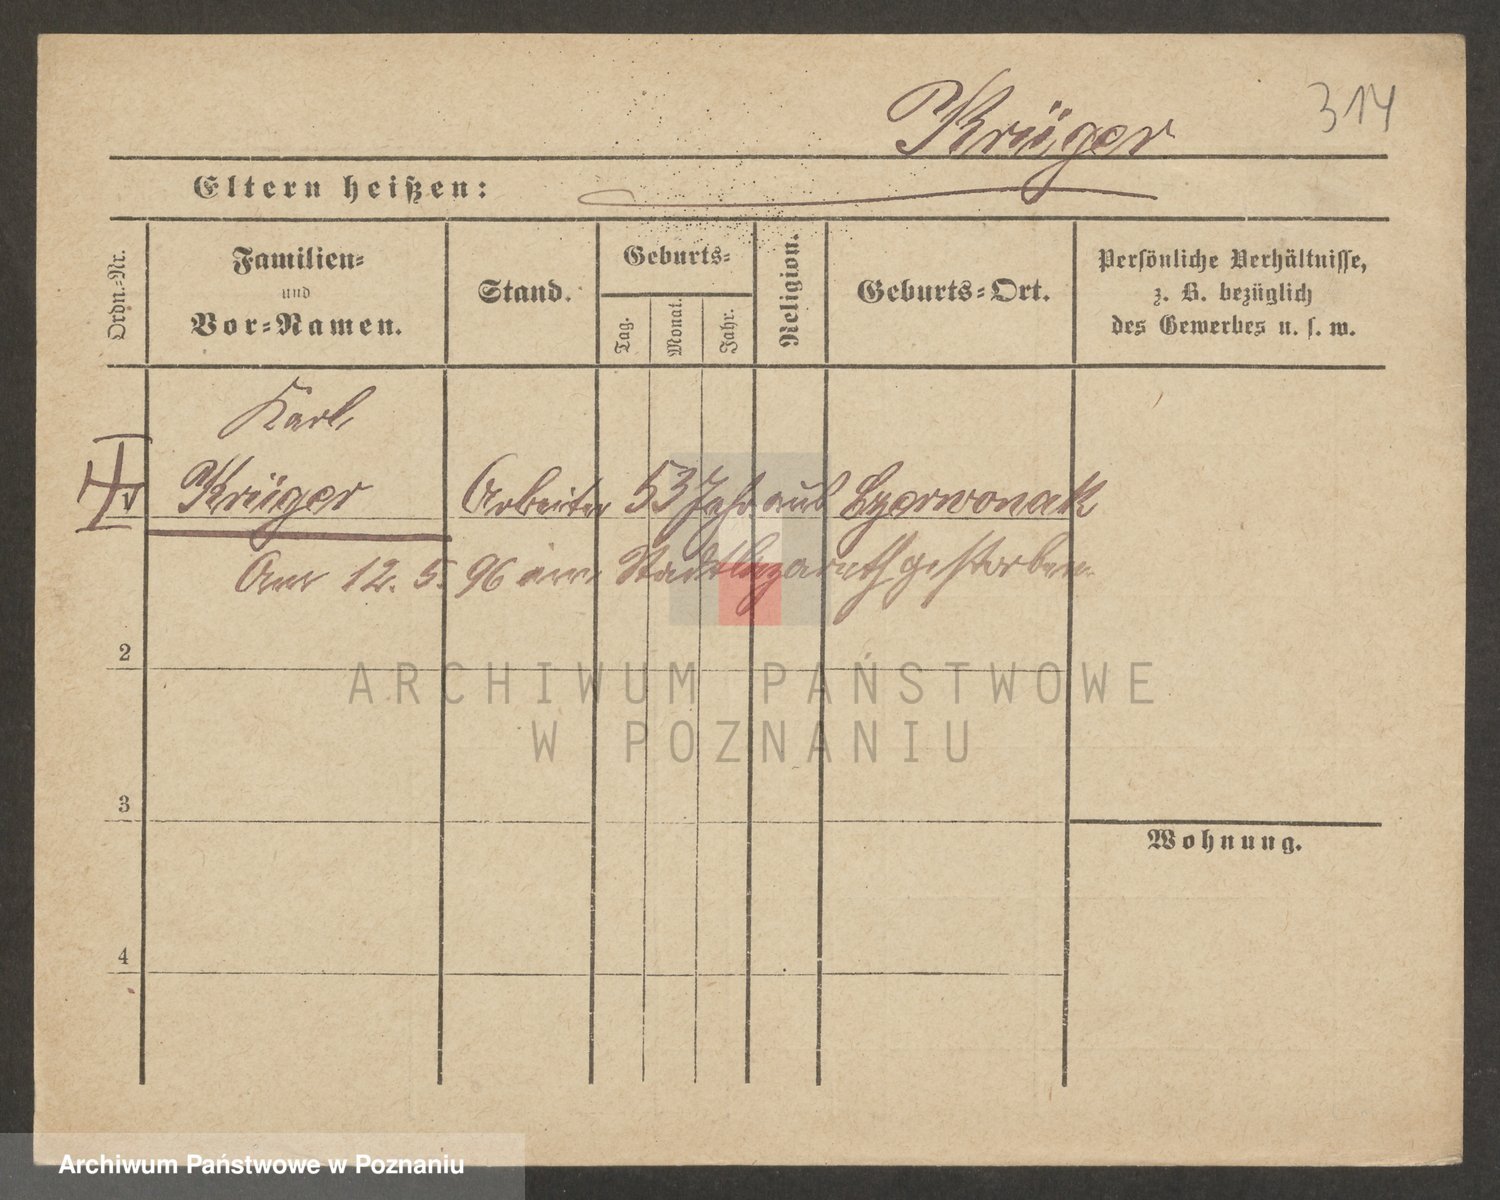 Krüger
314
Eltern heißen:
Ordn.-Nr.
Familien-
und
Vor-Namen.
Stand.
Geburts-
Tag.
Monat.
Jahr.
Religion.
Geburts-Ort.
Persönliche Verhältnisse,
z. B. bezüglich
des Gewerbes u. s. w.
Karl
Krüger Arbeiter 53 Jahr aus Czerwonak
Am 12. 5. 96 im Stadtlazareth gestorben
2
ARCHIWUM PAŃSTWOWE
W POZNANIU
3
Wohnung.
4
Archiwum Państwowe w Poznaniu